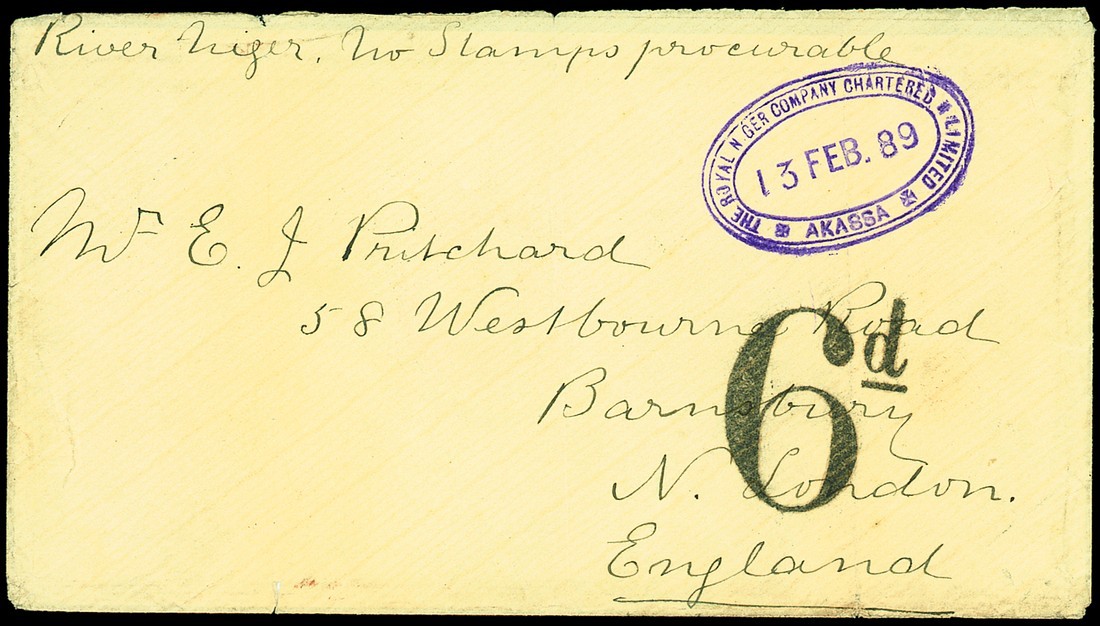 River Niger. No Stamps procurable
THE ROYAL NIGER COMPANY CHARTERED & LIMITED
13 FEB. 89
AKASSA
Mr E. J Pritchard
58 Westbourne Road
6d
Barnsbury
N. London.
England